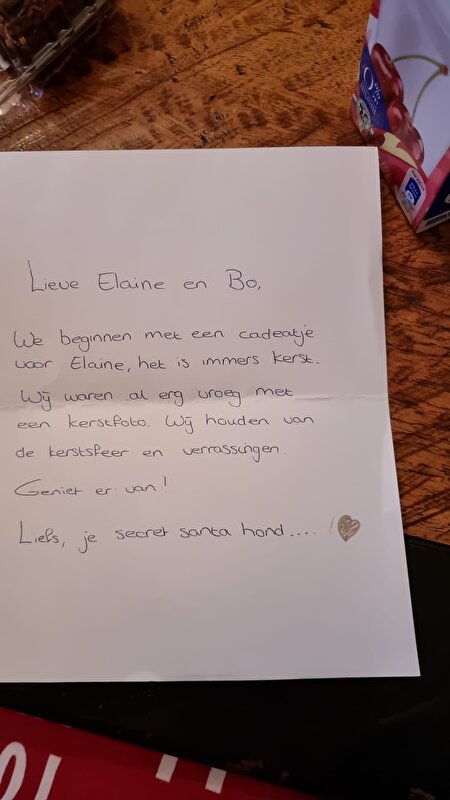 Lieve Elaine en Bo,
We beginnen met een cadeatje
voor Elaine, het is immers kerst.
Wij waren al erg vroeg met
een kerstfoto. Wij houden van
de kerstsfeer en verrassingen.
Geniet er van!
Liefs, je secret santa hond....
0%